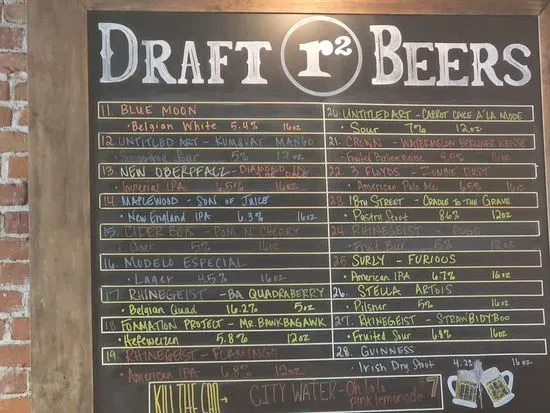 DRAFT r² BEERS
11. BLUE MOON
• Belgian White 5.4% 16oz
12. UNTITLED ART - KUMQUAT MANGO
• Smoothie Sour 5% 12oz
13. NEW OBERPFALZ - DIAMONDS
• Imperial IPA 6.5% 16oz
14. MAPLEWOOD - SON OF JUICE
• New England IPA 6.3% 16oz
15. CIDER BOYS - POM N' CHERRY
• Cider 5% 16oz
16. MODELO ESPECIAL
• Lager 4.5% 16oz
17. RHINEGEIST - BA QUADRABERRY
• Belgian Quad 16.2% 5oz
18. FOAMATION PROJECT - MR. BANKBAGAWK
• Hefeweizen 5.8% 12oz
19. RHINEGEIST - FLAMINGO
• American IPA 6.8% 12oz
20. UNTITLED ART - CARROT CAKE A'LA MODE
• Sour 7% 12oz
21. CROWN - WATERMELON BERLINER WEISSE
• Fruited Berliner Weisse 4.5% 16oz
22. 3 FLOYDS - ZOMBIE DUST
• American Pale Ale 6.5% 16oz
23. 18TH STREET - CRADLE TO THE GRAVE
• Pastry Stout 8.6% 12oz
24. RHINEGEIST - POGO
• Fruit Beer 5% 12oz
25. SURLY - FURIOUS
• American IPA 6.7% 16oz
26. STELLA ARTOIS
• Pilsner 5% 16oz
27. RHINEGEIST - STRAWBIDYBOO
• Fruited Sour 6.8% 16oz
28. GUINNESS
• Irish Dry Stout 4.2% 16oz
KILL THE CAN → CITY WATER - Oh la la pink lemonade 7